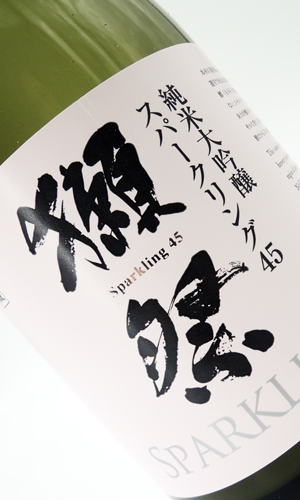 純米大吟醸
スパークリング45
獺祭
Sparkling 45
SPARKLI